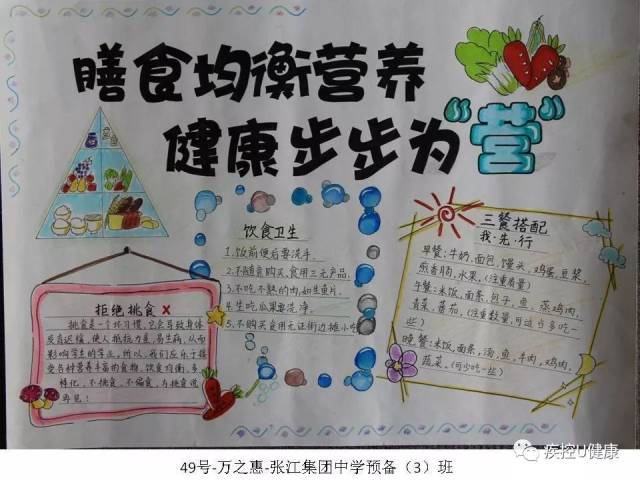 膳食均衡营养
健康步步为“营”
饮食卫生
1.饭前便后要洗手.
2.不随意购买、食用三无产品.
3.不吃不熟的肉,如生鱼片.
4.生吃瓜果要洗净.
5.不购买食用无证街边摊小吃
三餐搭配
我·先·行
早餐:牛奶,面包,馒头,鸡蛋,豆浆,
煎香肠,水果,(注重质量)
午餐:米饭,面条,包子,鱼,蒸鸡肉,
青菜,番茄,(注重数量,可适当多吃一
些)
晚餐:米饭,面条,汤,鱼,牛肉,鸡肉,
蔬菜,(可少吃一些)
拒绝挑食
挑食是一个坏习惯,它会导致身体
发育迟缓,使人抵抗力差,易生病,从而
影响学生的学业,所以,我们应乐于接
受各种营养丰富的食物,饮食均衡,多
样化,不挑食,不偏食,与挑食说
再见!
疾控U健康
49号-万之惠-张江集团中学预备（3）班